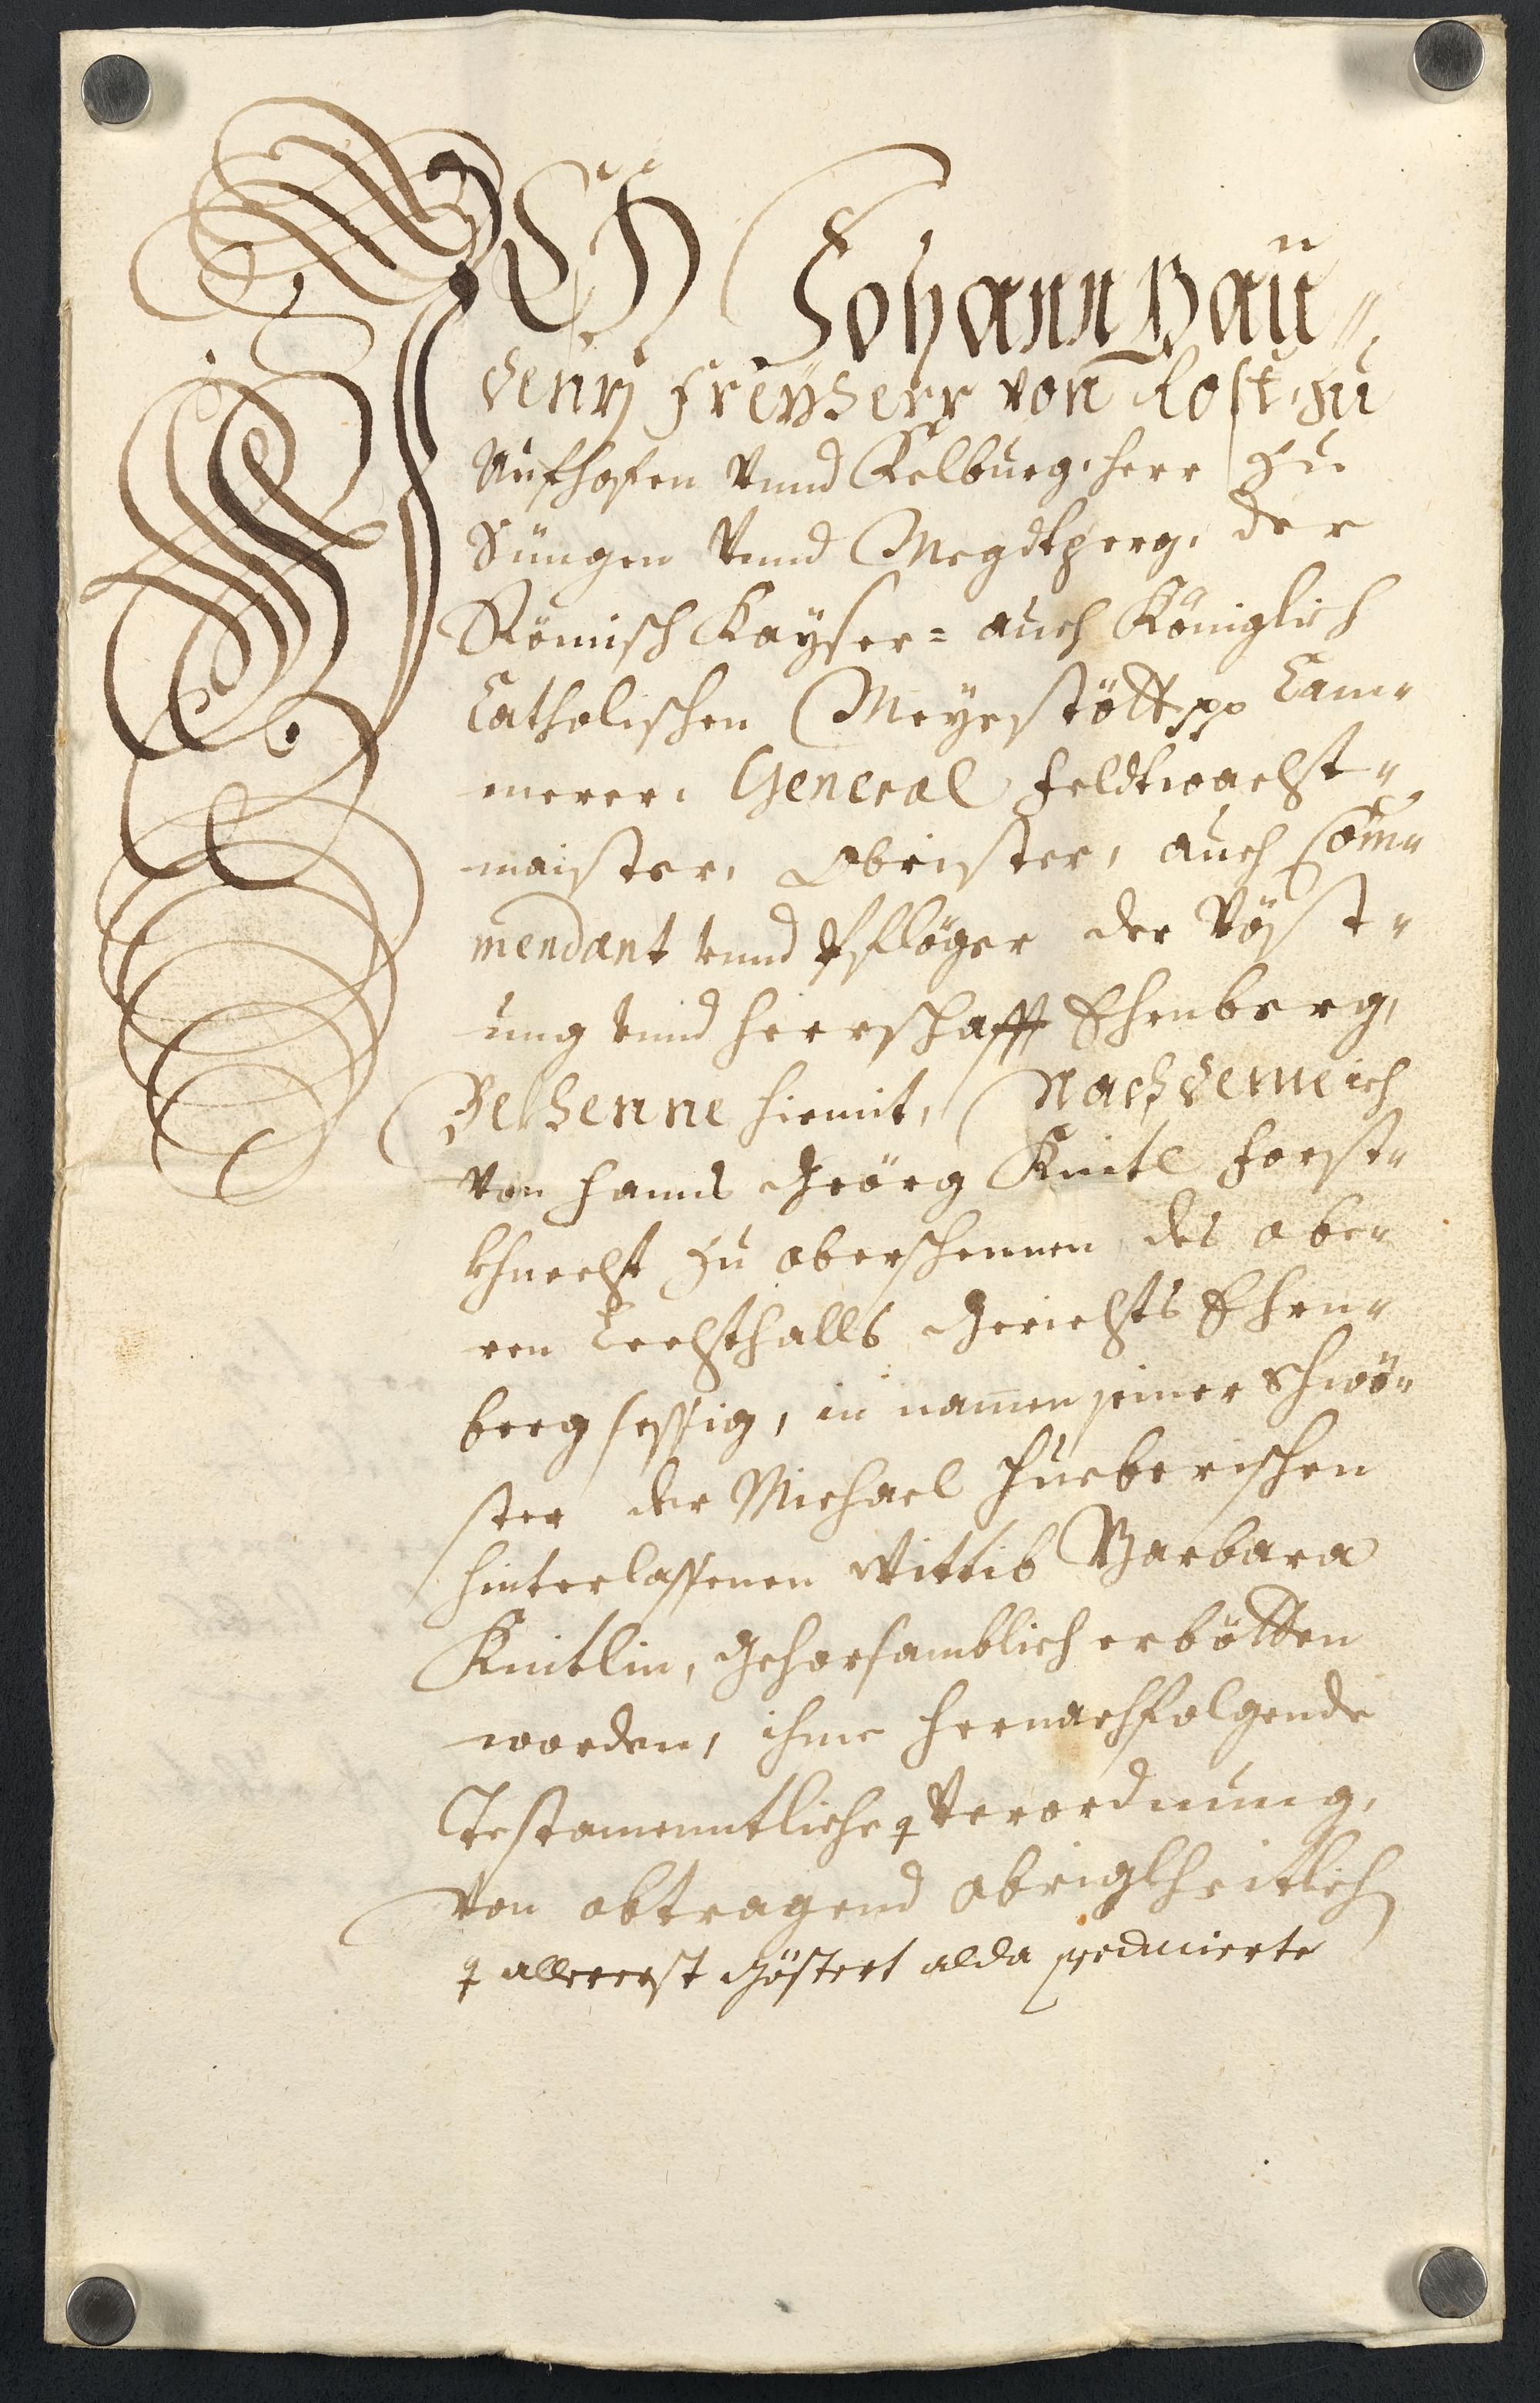 ICH Johann Gau„
denz Freyherr von Rost, zu
Aufhofen vnnd Kelburg, herr zu
Süngen vnnd Megdtperg, der
Römisch Kayser= auch Königlich
Catholischen Mayestött pp Cam„
merer, General Feldtwachst„
maister, Obrister, auch Com„
mendant vnnd Pfleger der Vöst„
ung vnnd Herrschafft Ehrnberg,
Bekhenne hiemit, Nachdeme ich
von Hannß Geörg Knitl Forst„
khnecht zu oberschennen des obe„
ren Lechsthalls Gerichts Ehrn„
berg sessig, in namen seiner Schwö„
ster der Michael Hueberischen
hinterlassenen Wittib Barbara
Knitlin, gehorsamblich erbötten
worden, ihme hernachfolgende
Testamenntliche Verordnung,
von obtragend obrigkheitlich
allererst göstert alda producierte